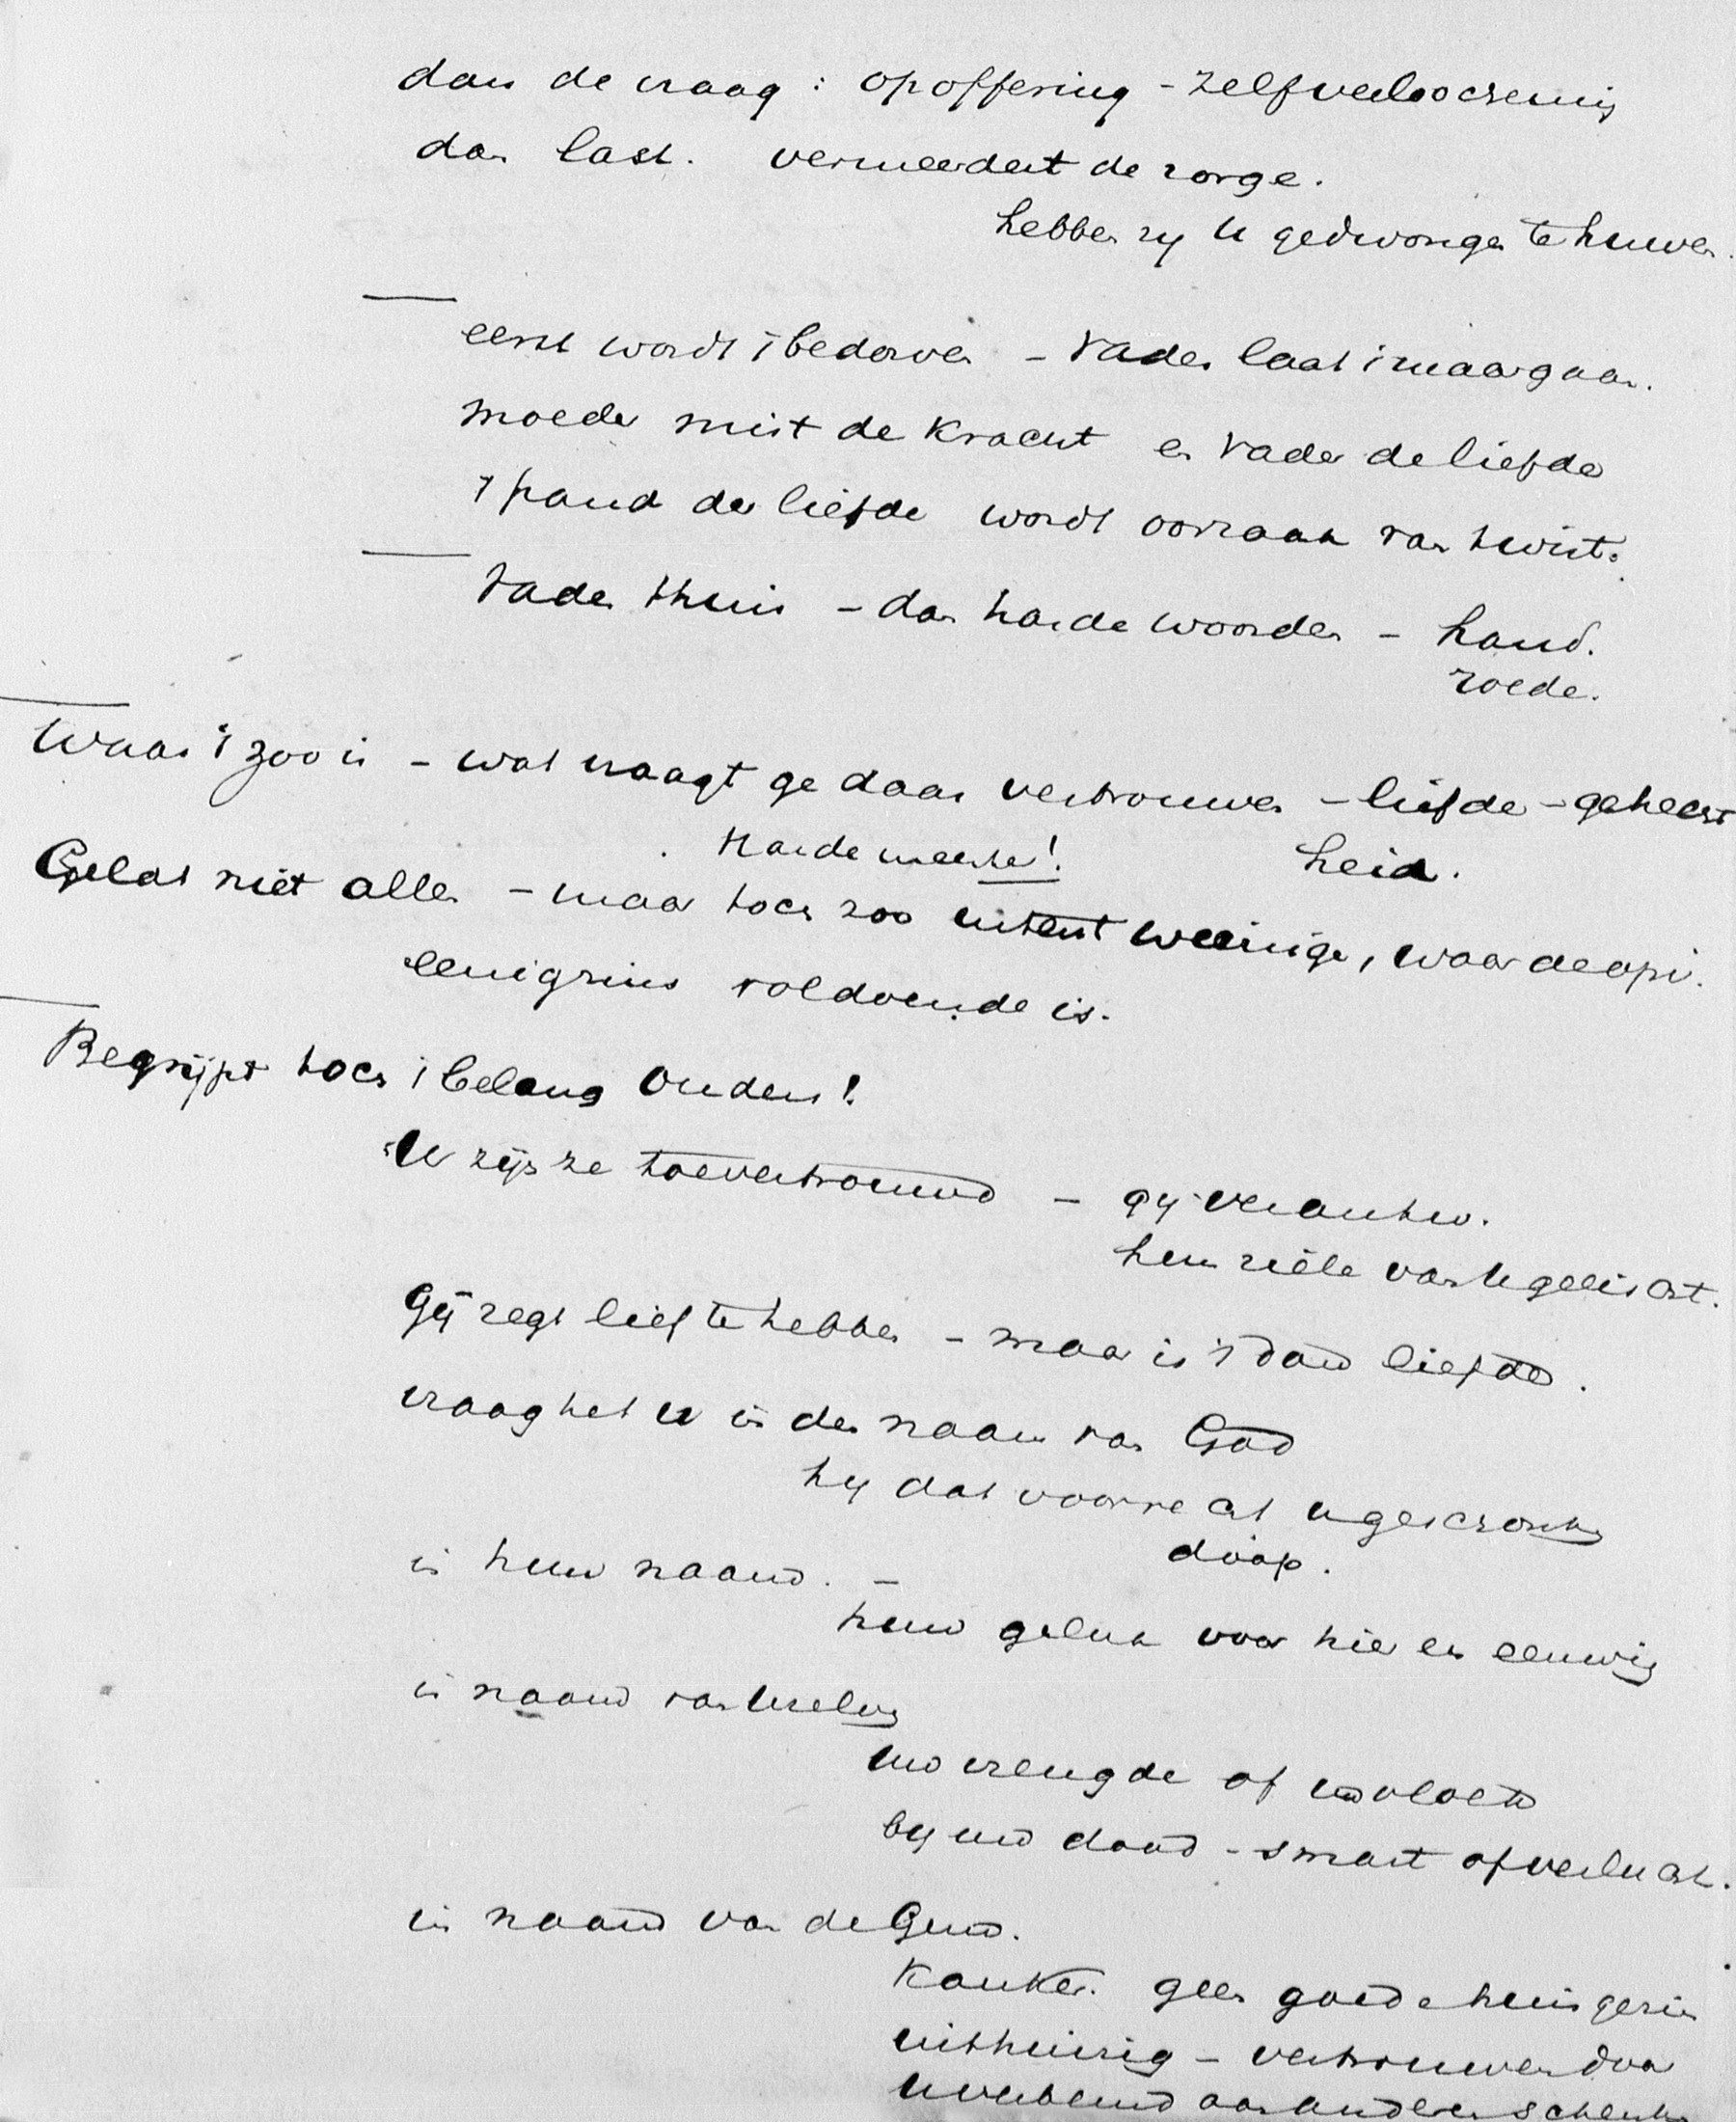 dan de vraag : opoffering - zelfverloochening
dan last. vermeerdert de zorge.
hebben zij U gedwongen te huwen.
eerst wordt 't bedorven - Vader laat 't maar gaan.
moeder mist de kracht en vader de liefde
't pand der liefde wordt oorzaak van twist.
Vader thuis - dan harde woorden - hand.
roede.
Waar 't zoo is - wat vraagt ge daar vertrouwen - liefde - gehecht
heid.
Harde meester!
Gelat niet allen - maar toch zoo weinige, waar de opv.
eenigzins voldoende is.
Begrijpt toch 't belang Ouders!
U zijn ze toevertrouwd - gij verantw.
hun ziele van U geëischt.
Gij zegt lief te hebben - maar is 't dan liefde.
vraag het U in den naam van God
hij dat voorrecht U geschonken
doop.
in hun naam. -
hun geluk voor hier en eeuwig
in naam van Uzelven
uw vreugde of uw vloek
bij uw dood - smart of verlucht.
in naam van de Gem.
Kanker. geen goede huisgezin
uithuizig - vertrouwen door
aan anderen schenken